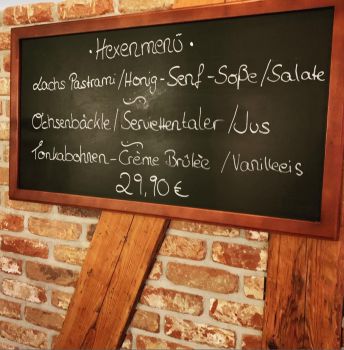 ·Hexenmenü·
Lachs Pastrami/Honig-Senf-Soße/Salate
Ochsenbäckle/Serviettentaler/Jus
Tonkabohnen-Crème Brûlèe /Vanilleeis
29,90€